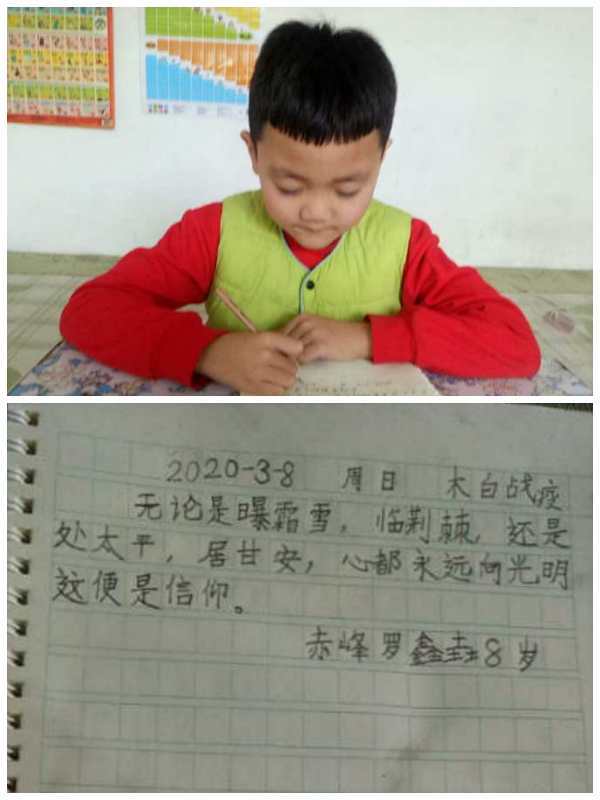 2020-3-8 周日 大白战疫
无论是曝霜雪，临荆棘，还是
处太平，居甘安，心都永远向光明
这便是信仰。
赤峰罗鑫垚8岁